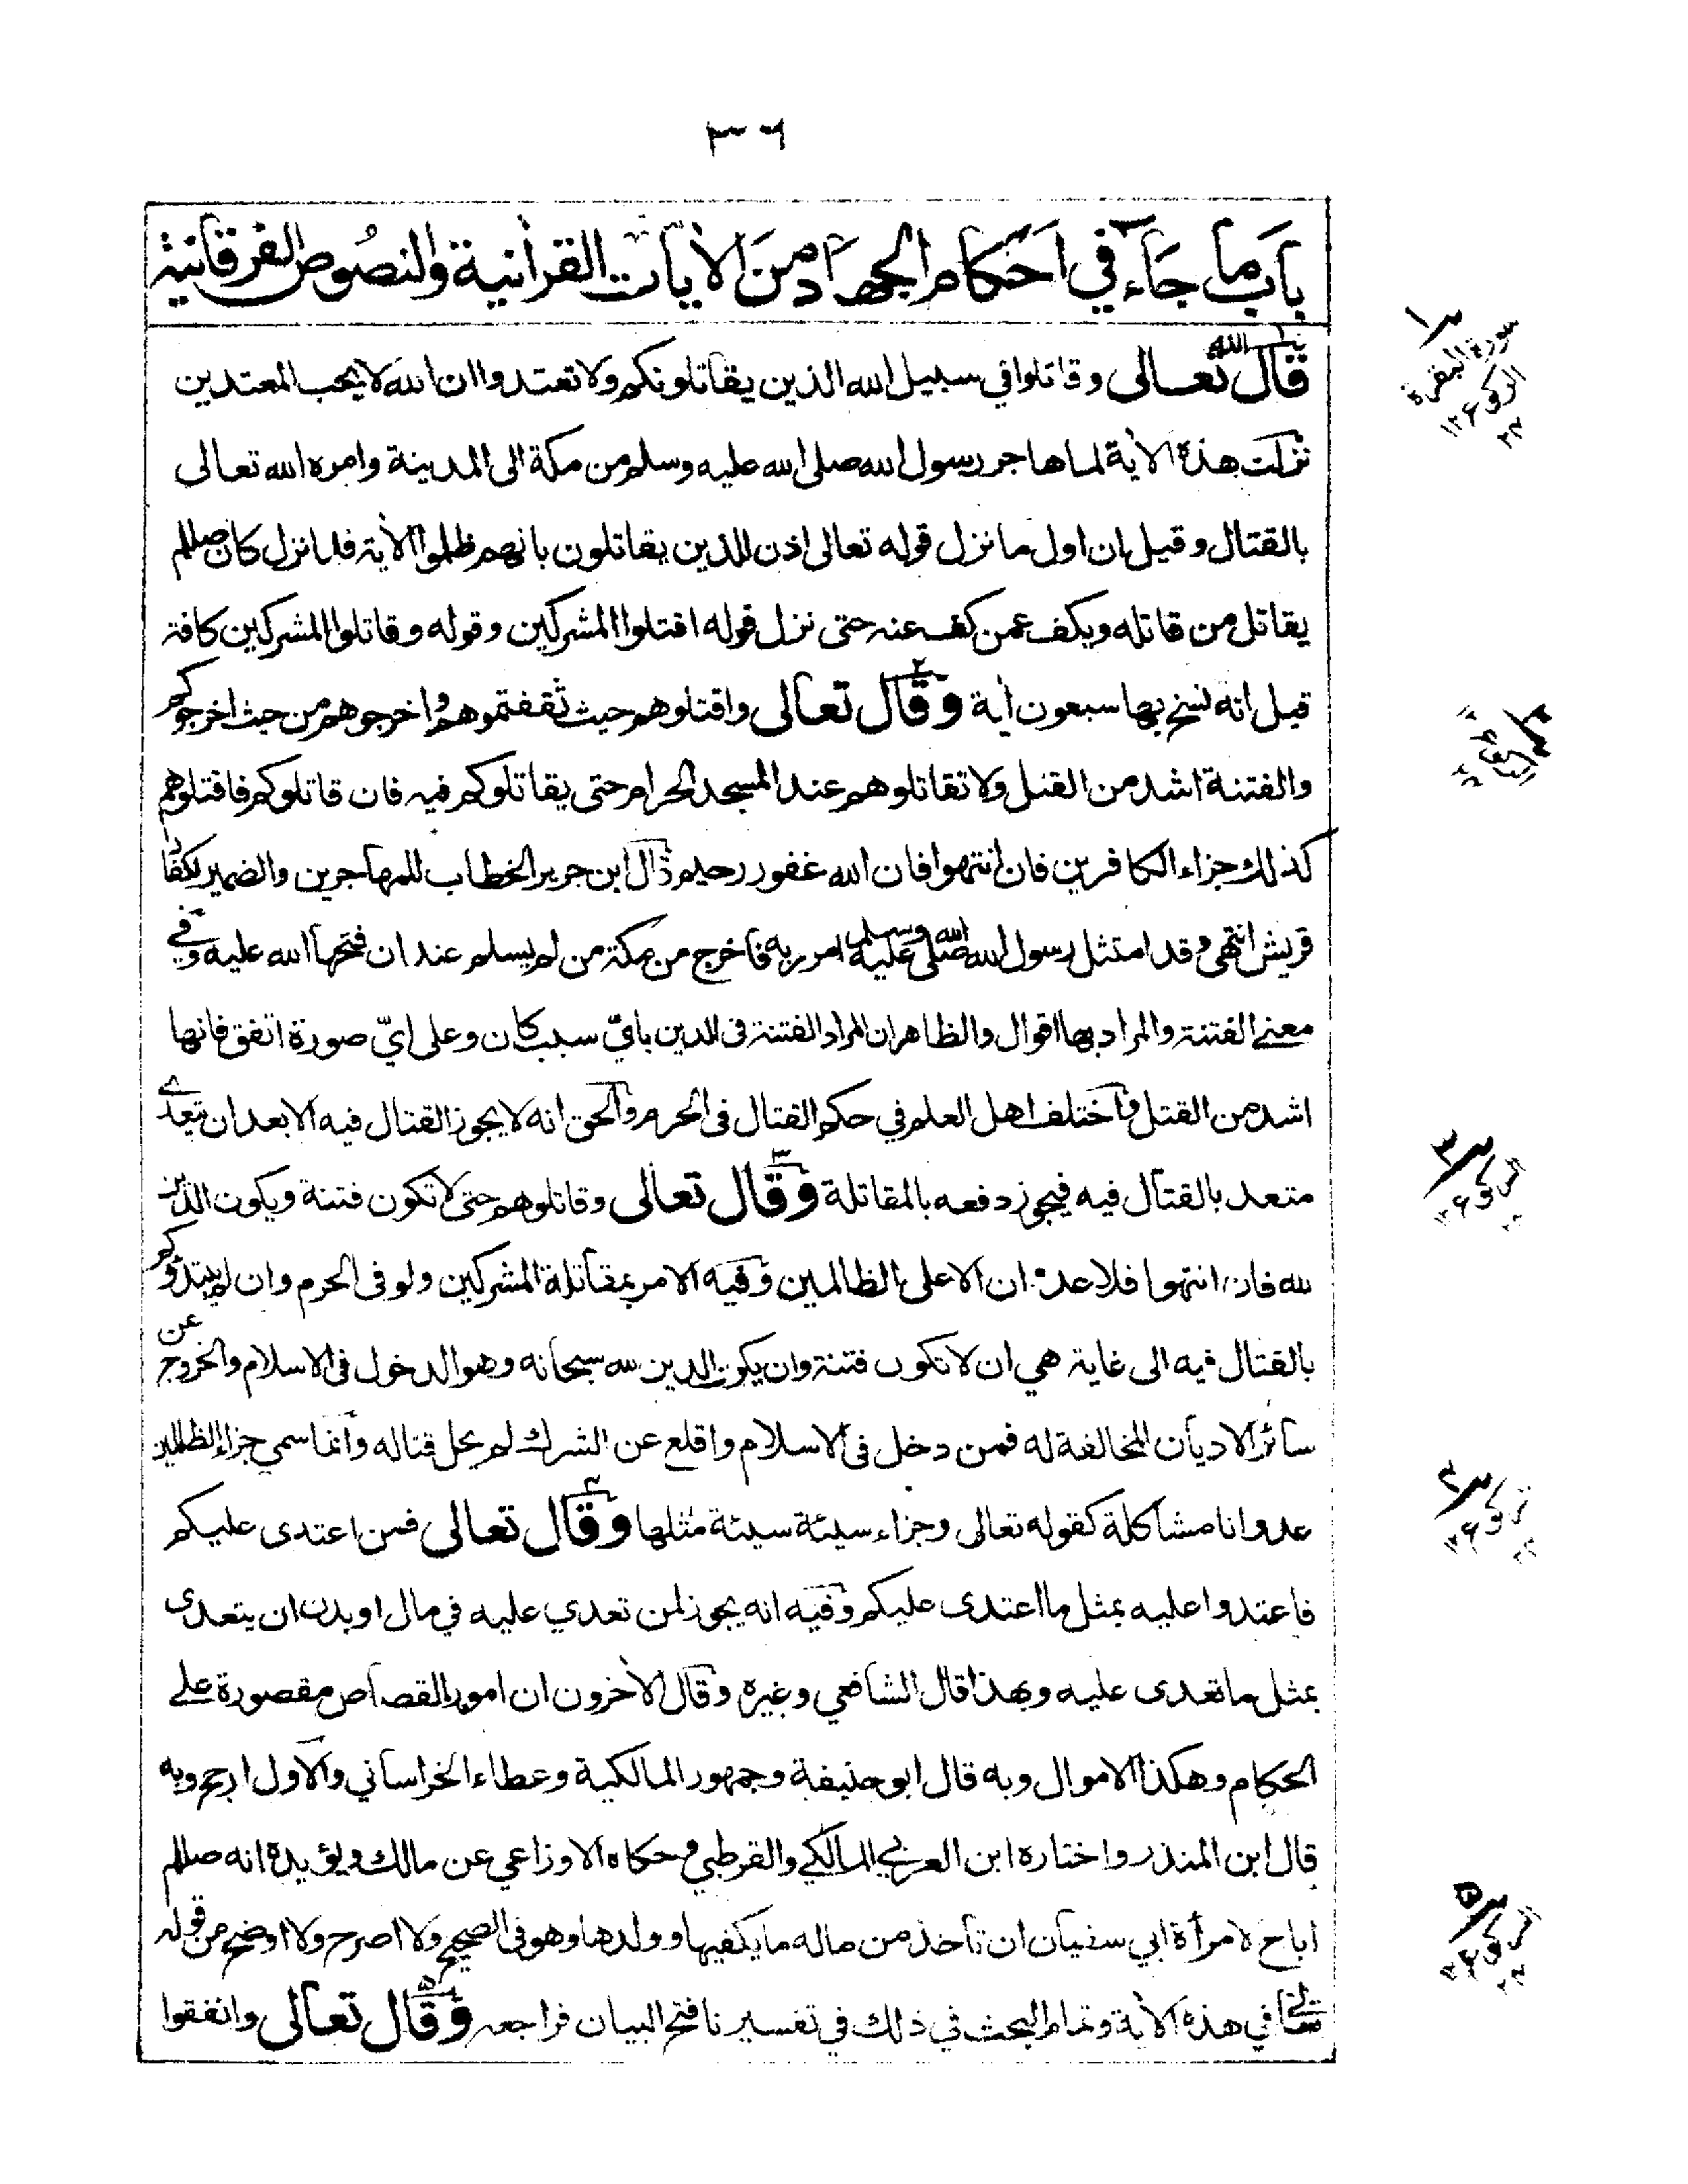 باب ما جاء في احكام الجهاد من الايات القرانية والنصوص الفرقانية
قال الله تعالى وقاتلوا في سبيل الله الذين يقاتلونكم ولا تعتدوا ان الله لا يحب المعتدين
نزلت هذه الاية لما هاجر رسول الله صلى الله عليه وسلم من مكة الى المدينة وامره الله تعالى
بالقتال وقيل ان اول ما نزل قوله تعالى اذن للذين يقاتلون بانهم ظلموا الاية فلما نزل كان صللم
يقاتل من قاتله ويكف عمن كف عنه حتى نزل قوله اقتلوا المشركين وقوله وقاتلوا المشركين كافة
قيل انه نسخ بها سبعون اية وقال تعالى واقتلوهم حيث ثقفتموهم واخرجوهم من حيث اخرجوكم
والفتنة اشد من القتل ولا تقاتلوهم عند المسجد الحرام حتى يقاتلوكم فيه فان قاتلوكم فاقتلوهم
كذلك جزاء الكافرين فان انتهوا فان الله غفور رحيم قال ابن جرير الخطاب للمهاجرين والضمير لكفار
قريش انتهى وقد امتثل رسول الله صلى الله عليه وسلم امر ربه فاخرج من مكة من لم يسلم عند ان فتحها الله عليه وفي
معنى الفتنة والمراد بها اقوال والظاهر ان المراد الفتنة في الدين باي سبب كان وعلى اي صورة اتفق فانها
اشد من القتل واختلف اهل العلم في حكم القتال في الحرم والحق انه لا يجوز القتال فيه الا بعد ان يتعدى
متعد بالقتال فيه فيجوز دفعه بالمقاتلة وقال تعالى وقاتلوهم حتى لا تكون فتنة ويكون الدين
لله فان انتهوا فلا عدوان الا على الظالمين وفيه الامر بمقاتلة المشركين ولو في الحرم وان لم يبتدؤكم
بالقتال فيه الى غاية هي ان لا تكون فتنة وان يكون الدين لله سبحانه وهو الدخول في الاسلام والخروج عن
سائر الاديان المخالفة له فمن دخل في الاسلام واقلع عن الشرك لم يحل قتاله وانما سمي جزاء الظالمين
عدوانا مشاكلة كقوله تعالى وجزاء سيئة سيئة مثلها وقال تعالى فمن اعتدى عليكم
فاعتدوا عليه بمثل ما اعتدى عليكم وفيه انه يجوز لمن تعدي عليه في مال او بدن ان يتعدى
بمثل ما تعدى عليه وبهذا قال الشافعي وغيره وقال الاخرون ان امور القصاص مقصورة على
الحكام وهكذا الاموال وبه قال ابو حنيفة وجمهور المالكية وعطاء الخراساني والاول ارجح وبه
قال ابن المنذر واختاره ابن العربي المالكي والقرطبي وحكاه الاوزاعي عن مالك ويؤيده انه صللم
اباح لامرأة ابي سفيان ان تأخذ من ماله ما يكفيها وولدها وهو في الصحيح ولا اصرح ولا اوضح من قوله
تعالى في هذه الاية وتمام البحث في ذلك في تفسيرنا فتح البيان فراجعه وقال تعالى وانفقوا
سورة البقرة